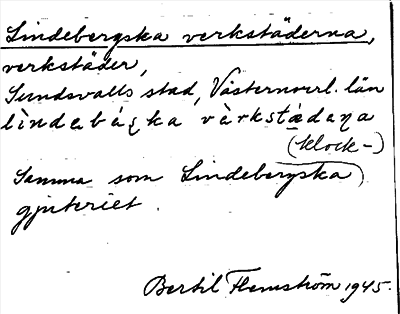 Lindebergska verkstäderna,
verkstäder,
Sundsvalls stad, Västernorrl. län
lìndebárska vàrkstädaɳa
(klock-)
Samma som Lindebergska
gjuteriet.
Bertil Flemström 1945.